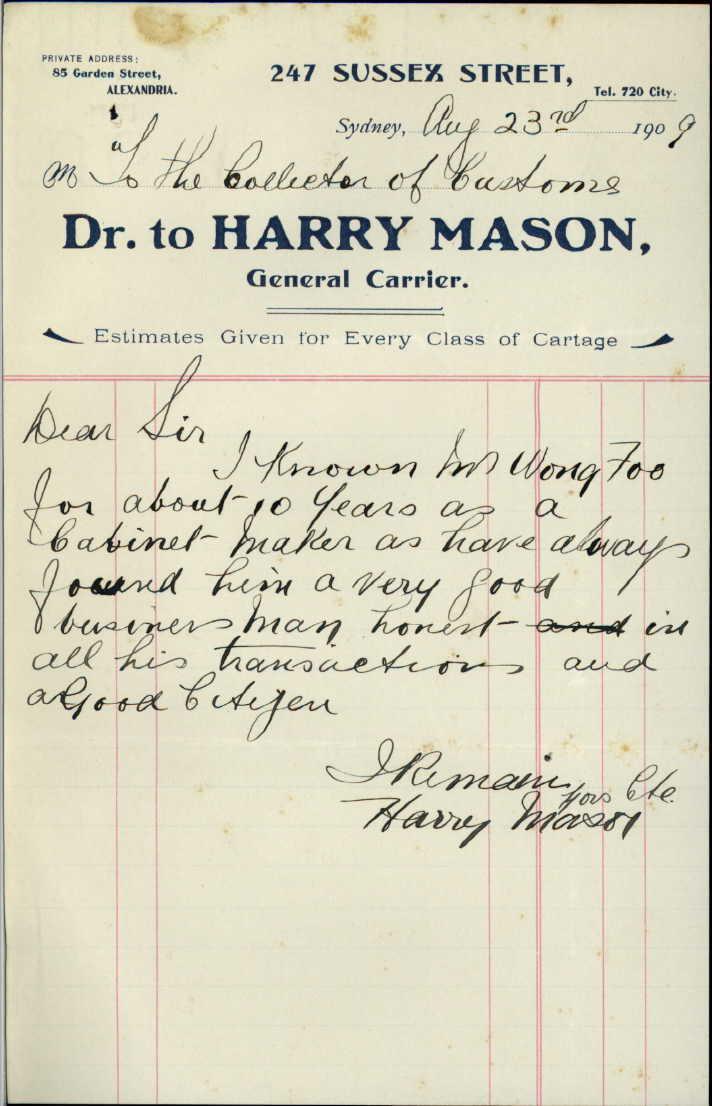 PRIVATE ADDRESS:
85 Garden Street,
ALEXANDRIA.
247 SUSSEX STREET,
Tel. 720 City.
Sydney, Aug 23rd 1909
M To the Collector of Customs
Dr. to HARRY MASON,
General Carrier.
Estimates Given for Every Class of Cartage
Dear Sir
I Known Mr Wong Foo
for about 10 Years as a
Cabinet Maker as have always
found him a very good
business Man honest and in
all his transactions and
a Good Citizen
I Remain
Yors Etc.
Harry Mason